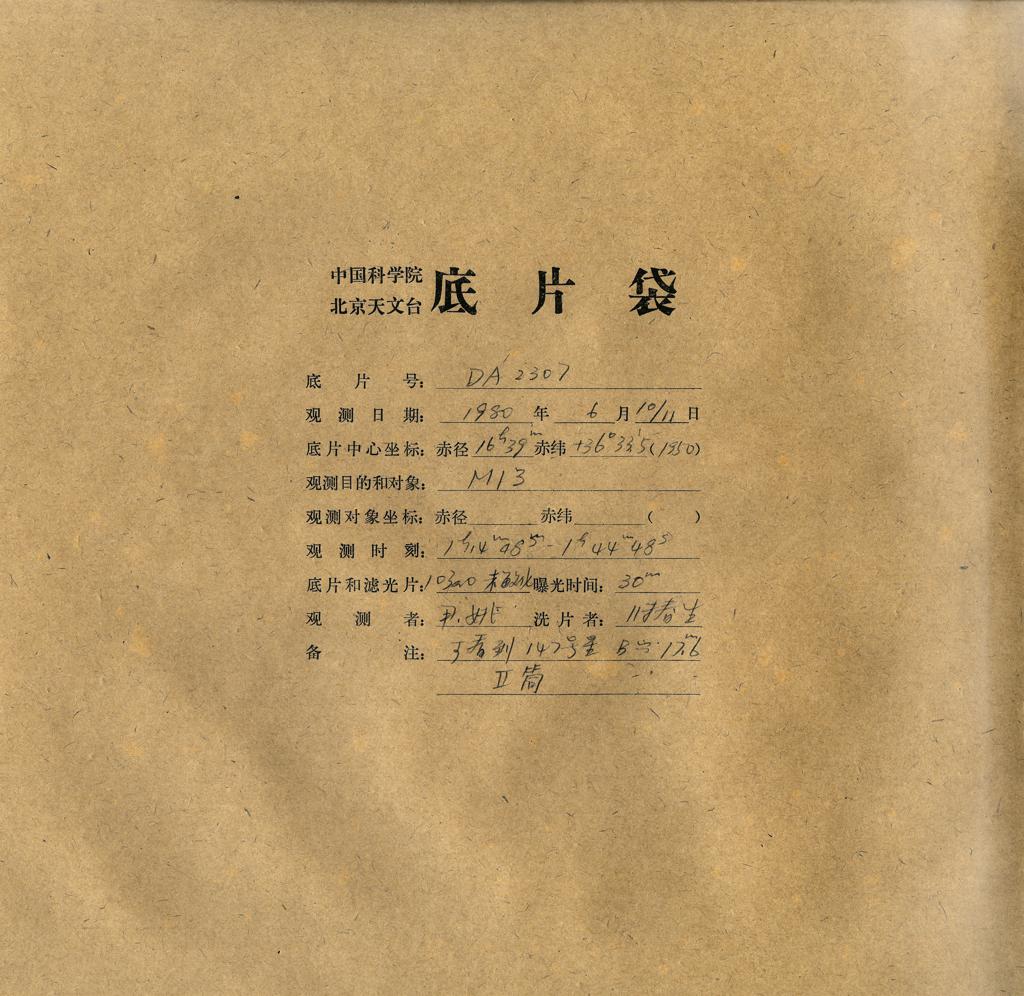 中国科学院
北京天文台
底片袋
底片号: DA 2307
观测日期: 1980 年 6 月 10/11 日
底片中心坐标: 赤径 16h39m 赤纬 +36°33.'5 (1950)
观测目的和对象: M13
观测对象坐标: 赤径 赤纬 ( )
观测时刻: 1h14m48s - 1h44m48s
底片和滤光片: 曝光时间: 30m
观测者: 洗片者:
备注: 看到 147号星 B 17.m6
II 筒